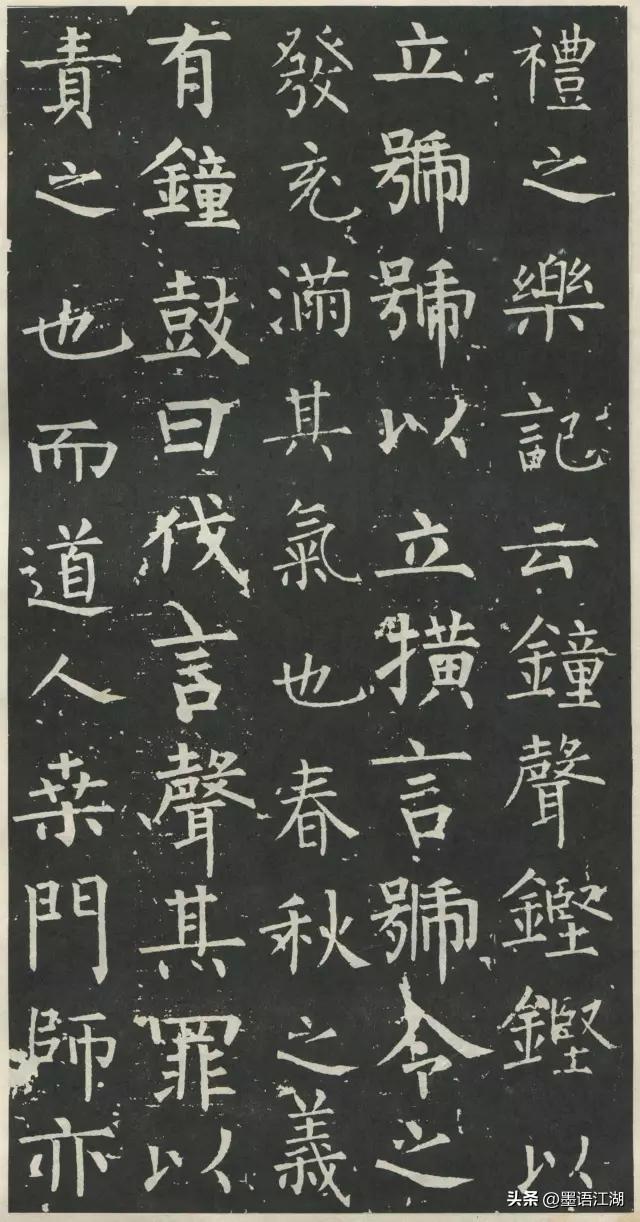 禮之樂記云鐘聲鏗鏗以
立號號以立撗言號令之
發充滿其氣也春秋之義
有鐘鼓曰伐言聲其罪以
責之也而道人桒門師亦
头条 @墨语江湖